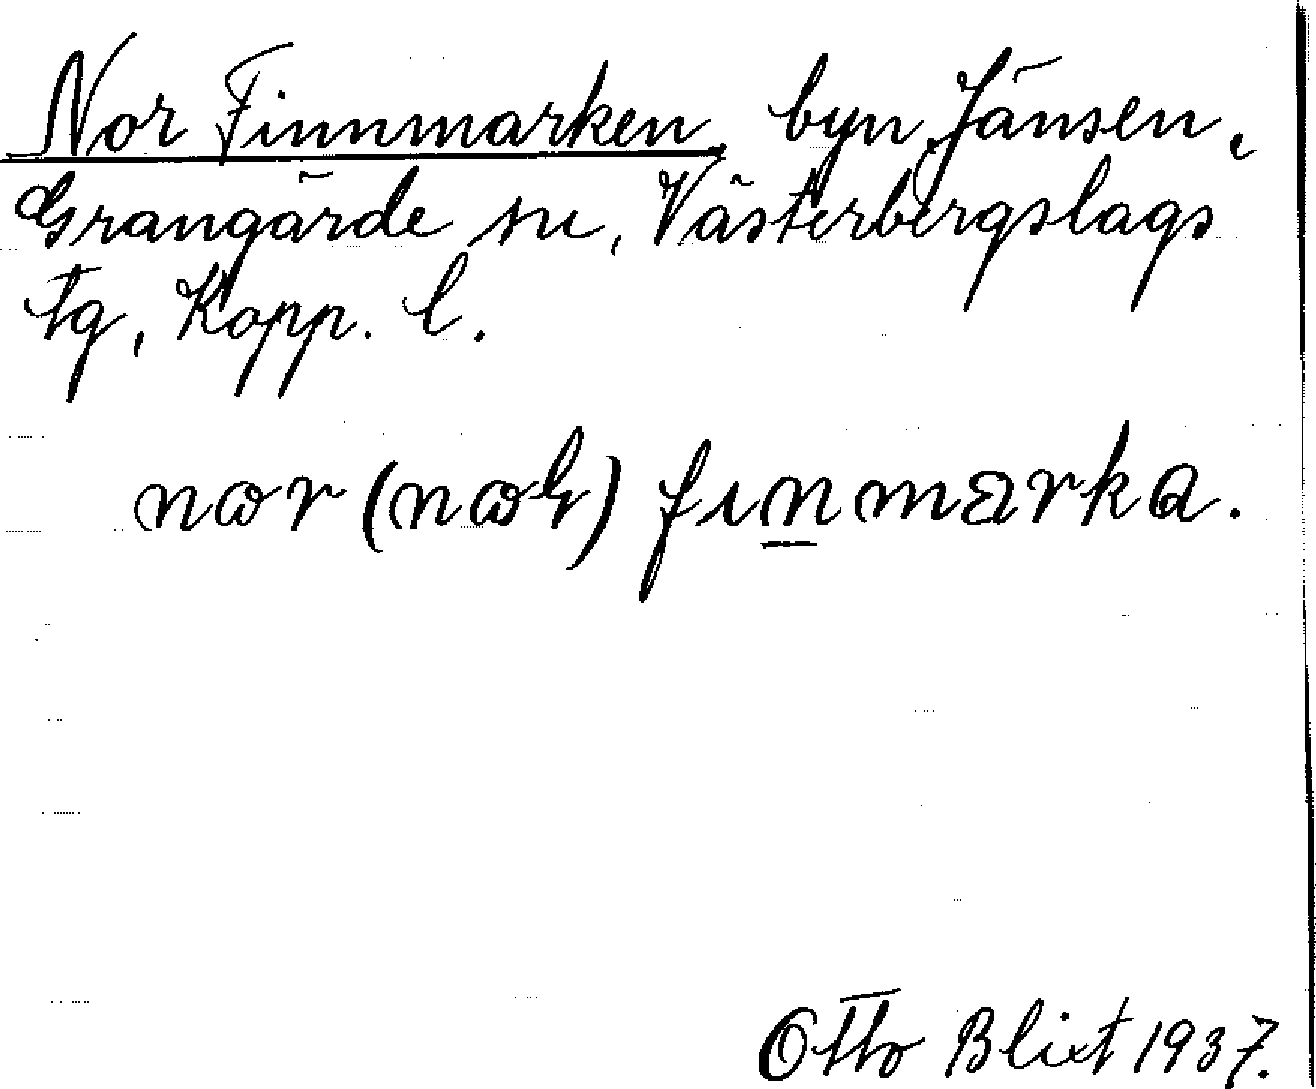 Nor Finnmarken, byn Jänsen,
Grangärde sn, Västerbergslags
tg, Kopp. l.
nor (noɽ) fɪn̲marka.
Otto Blixt 1937.